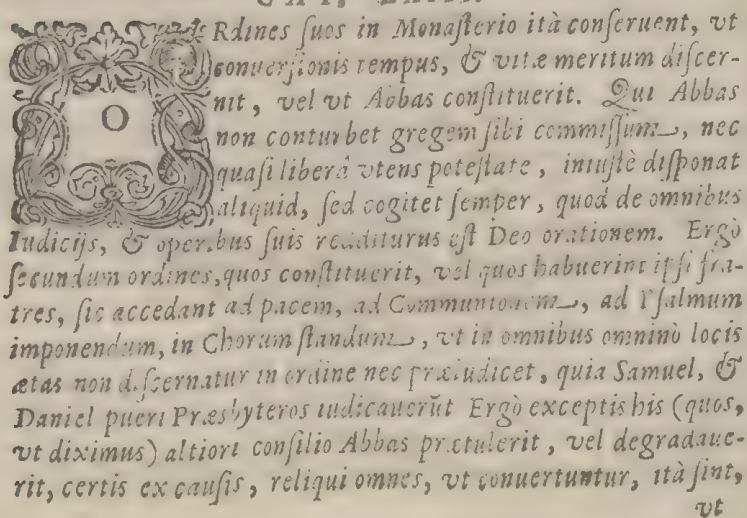 ORdines ſuos in Monaſterio ità conſeruent, vt
conuerſionis tempus, & vitæ meritum diſcer-
nit, vel vt Abbas conſtituerit. Qui Abbas
non conturbet gregem ſibi commiſſum, nec
quaſi liberâ vtens poteſtate, iniuſtè diſponat
aliquid, ſed cogitet ſemper, quod de omnibus
Iudicijs, & operibus ſuis redditurus eſt Deo orationem. Ergò
ſecundum ordines, quos conſtituerit, vel quos habuerint ipſi fra-
tres, ſic accedant ad pacem, ad Communionem, ad Pſalmum
imponendum, in Chorum ſtandum, vt in omnibus omninò locis
ætas non diſcernatur in ordine nec præiudicet, quia Samuel, &
Daniel pueri Præsbyteros iudicauerūt Ergò exceptis his (quos,
vt diximus) altiori conſilio Abbas prætulerit, vel degradaue-
rit, certis ex cauſis, reliqui omnes, vt conuertuntur, ità ſint,
vt